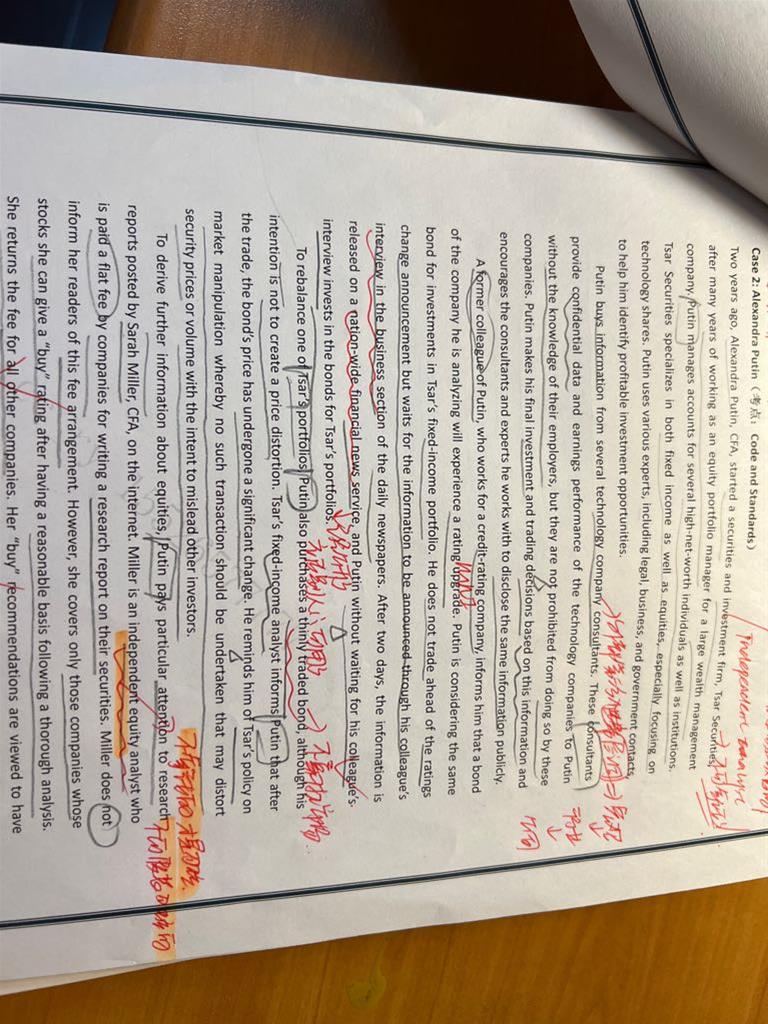 Case 2: Alexandra Putin（考点：Code and Standards）
Two years ago, Alexandra Putin, CFA, started a securities and investment firm, Tsar Securities,
after many years of working as an equity portfolio manager for a large wealth management
company. Putin manages accounts for several high-net-worth individuals as well as institutions.
Tsar Securities specializes in both fixed income as well as equities, especially focusing on
technology shares. Putin uses various experts, including legal, business, and government contacts,
to help him identify profitable investment opportunities.
Putin buys information from several technology company consultants. These consultants
provide confidential data and earnings performance of the technology companies to Putin
without the knowledge of their employers, but they are not prohibited from doing so by these
companies. Putin makes his final investment and trading decisions based on this information and
encourages the consultants and experts he works with to disclose the same information publicly.
A former colleague of Putin, who works for a credit-rating company, informs him that a bond
of the company he is analyzing will experience a rating upgrade. Putin is considering the same
bond for investments in Tsar's fixed-income portfolio. He does not trade ahead of the ratings
change announcement but waits for the information to be announced through his colleague's
interview in the business section of the daily newspapers. After two days, the information is
released on a nation-wide financial news service, and Putin without waiting for his colleague's
interview invests in the bonds for Tsar's portfolios.
To rebalance one of Tsar's portfolios, Putin also purchases a thinly traded bond, although his
intention is not to create a price distortion. Tsar's fixed-income analyst informs Putin that after
the trade, the bond's price has undergone a significant change. He reminds him of Tsar's policy on
market manipulation whereby no such transaction should be undertaken that may distort
security prices or volume with the intent to mislead other investors.
To derive further information about equities, Putin pays particular attention to research
reports posted by Sarah Miller, CFA, on the internet. Miller is an independent equity analyst who
is paid a flat fee by companies for writing a research report on their securities. Miller does not
inform her readers of this fee arrangement. However, she covers only those companies whose
stocks she can give a "buy" rating after having a reasonable basis following a thorough analysis.
She returns the fee for all other companies. Her "buy" recommendations are viewed to have